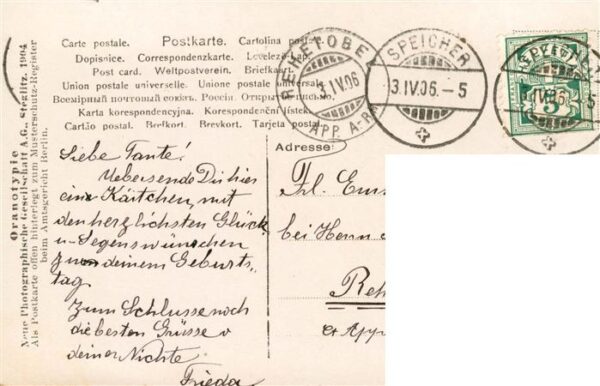 Carte postale. Postkarte. Cartolina postale.
Dopisnice. Correspondenzkarte. Levelező-lap.
Post card. Weltpostverein. Briefkaart.
Union postale universelle. Unione postale universale.
Всемірный почтовый союзъ. Россія. Открытое письмо.
Karta korespondencyjna. Korespondenční lístek.
Cartão postal. Brefkort. Brevkort. Tarjeta postal.
Oranotypie
Neue Photographische Gesellschaft A.G., Steglitz. 1904
Als Postkarte offen hinterlegt zum Musterschutz-Register
beim Amtsgericht Berlin.
REHETOBEL
3.IV.06
APP. A-RH
SPEICHER
3.IV.06.-5
SPEICHER
IV.06
5
Liebe Tante!
Uebersende Dir hier
ein Kärtchen, mit
den herzlichsten Glück
u. Segenswünschen
zu deinem Geburts-
tag.
Zum Schlusse noch
die besten Grüsse v
deiner Nichte
Frieda
Adresse:
Frl.
bei Herrn
Reh
App